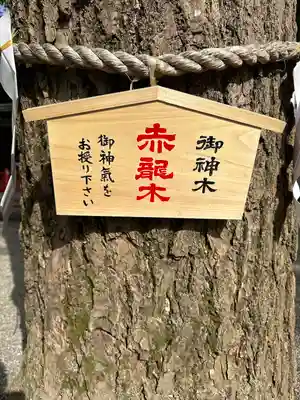 御神木
赤龍木
御神氣を
お授り下さい